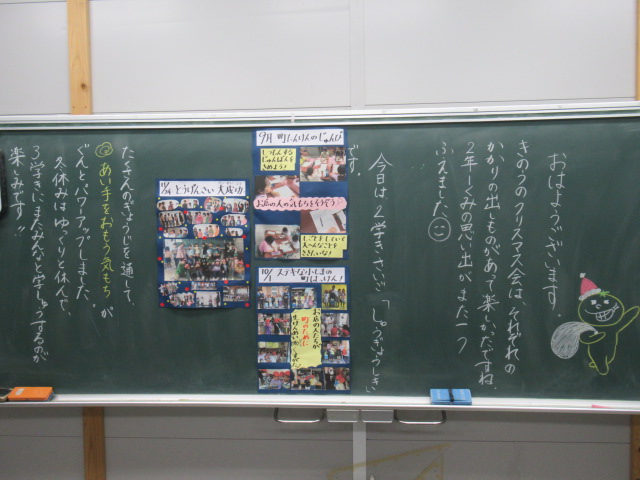 おはようございます。
きのうのクリスマス会は、それぞれの
かかりの出しものがあって楽しかったですね。
2年1くみの思い出が、また一つ
ふえました。
今日は、2学きさいご「しゅうぎょうしき」
です。
9月 町たんけんのじゅんび
しつもんする
じゅんばんを
きめよう!
お店の人の気もちをそうぞう
しごとをしていて
たいへんなことを
ききたいな!
10/1 ステキな小しまの
町はっけん!
お店の人たちが
町のために
10/24 とう広さい 大成功
たくさんのぎょうじを通して、
あい手をおもう気もちが
ぐんとパワーアップしました。
冬休みはゆっくり休んで、
3学きにまたみんなと学しゅうするのが
楽しみです!!